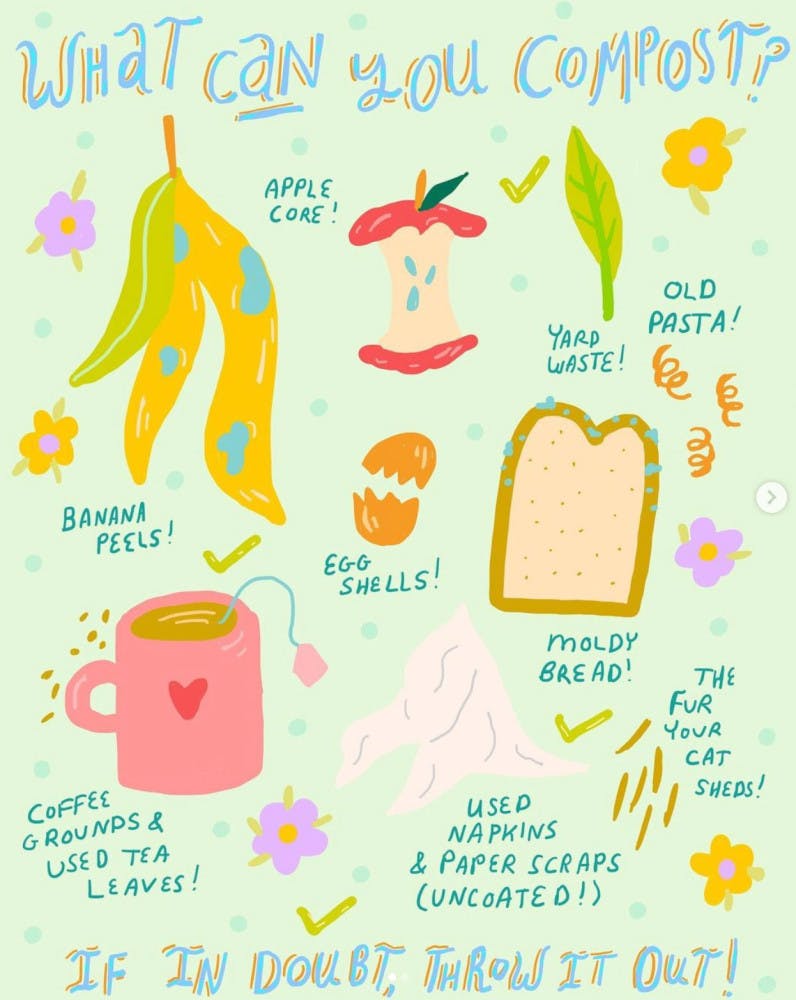 WHAT CAN YOU COMPOST?
APPLE
CORE!
YARD
WASTE!
OLD
PASTA!
BANANA
PEELS!
EGG
SHELLS!
MOLDY
BREAD!
THE
FUR
YOUR
CAT
SHEDS!
COFFEE
GROUNDS &
USED TEA
LEAVES!
USED
NAPKINS
& PAPER SCRAPS
(UNCOATED!)
IF IN DOUBT, THROW IT OUT!